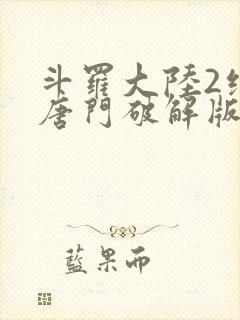 斗羅大陸2
唐門破解版
藍果而